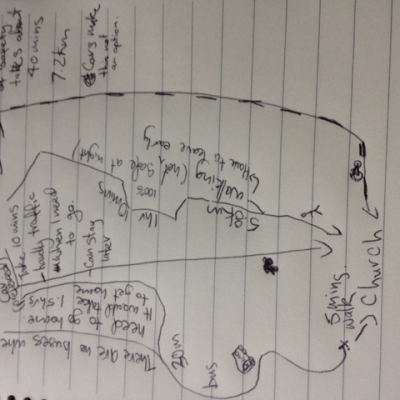 takes about
40 mins
7.2km
Cars make
this not
an option.
Walking (not 100% safe at night)
↳ Have to leave early
1hr
5.8km
10mins
take 10 mins
- hardly traffic
when I need
to go
- Can stay
later
There are no buses
need to go home.
It would take
1.5hrs
to get home
20m
bus
5 mins
walk
→ Church